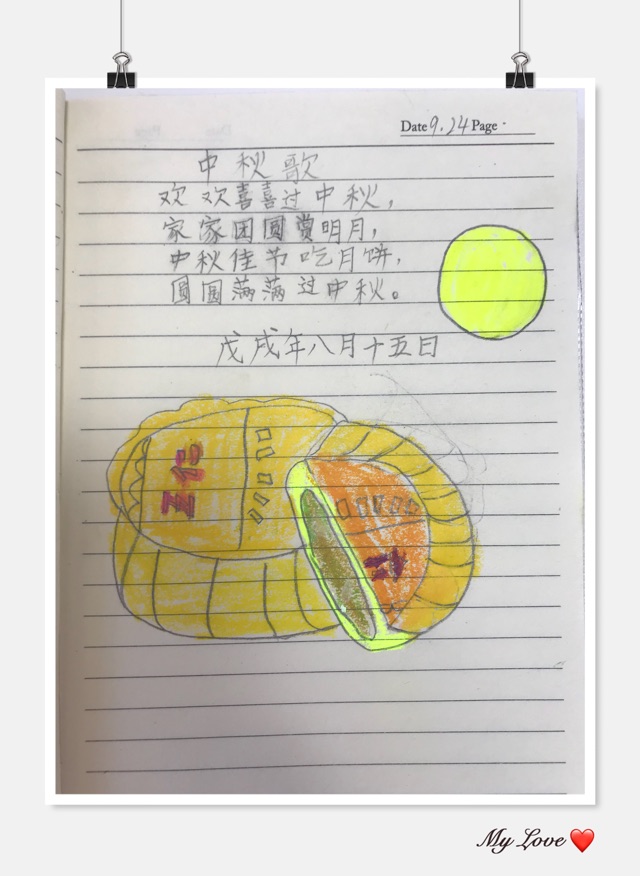 Date 9.24 Page
中秋歌
欢欢喜喜过中秋,
家家团圆赏明月,
中秋佳节吃月饼,
圆圆满满过中秋。
戊戌年八月十五日
五仁
My Love